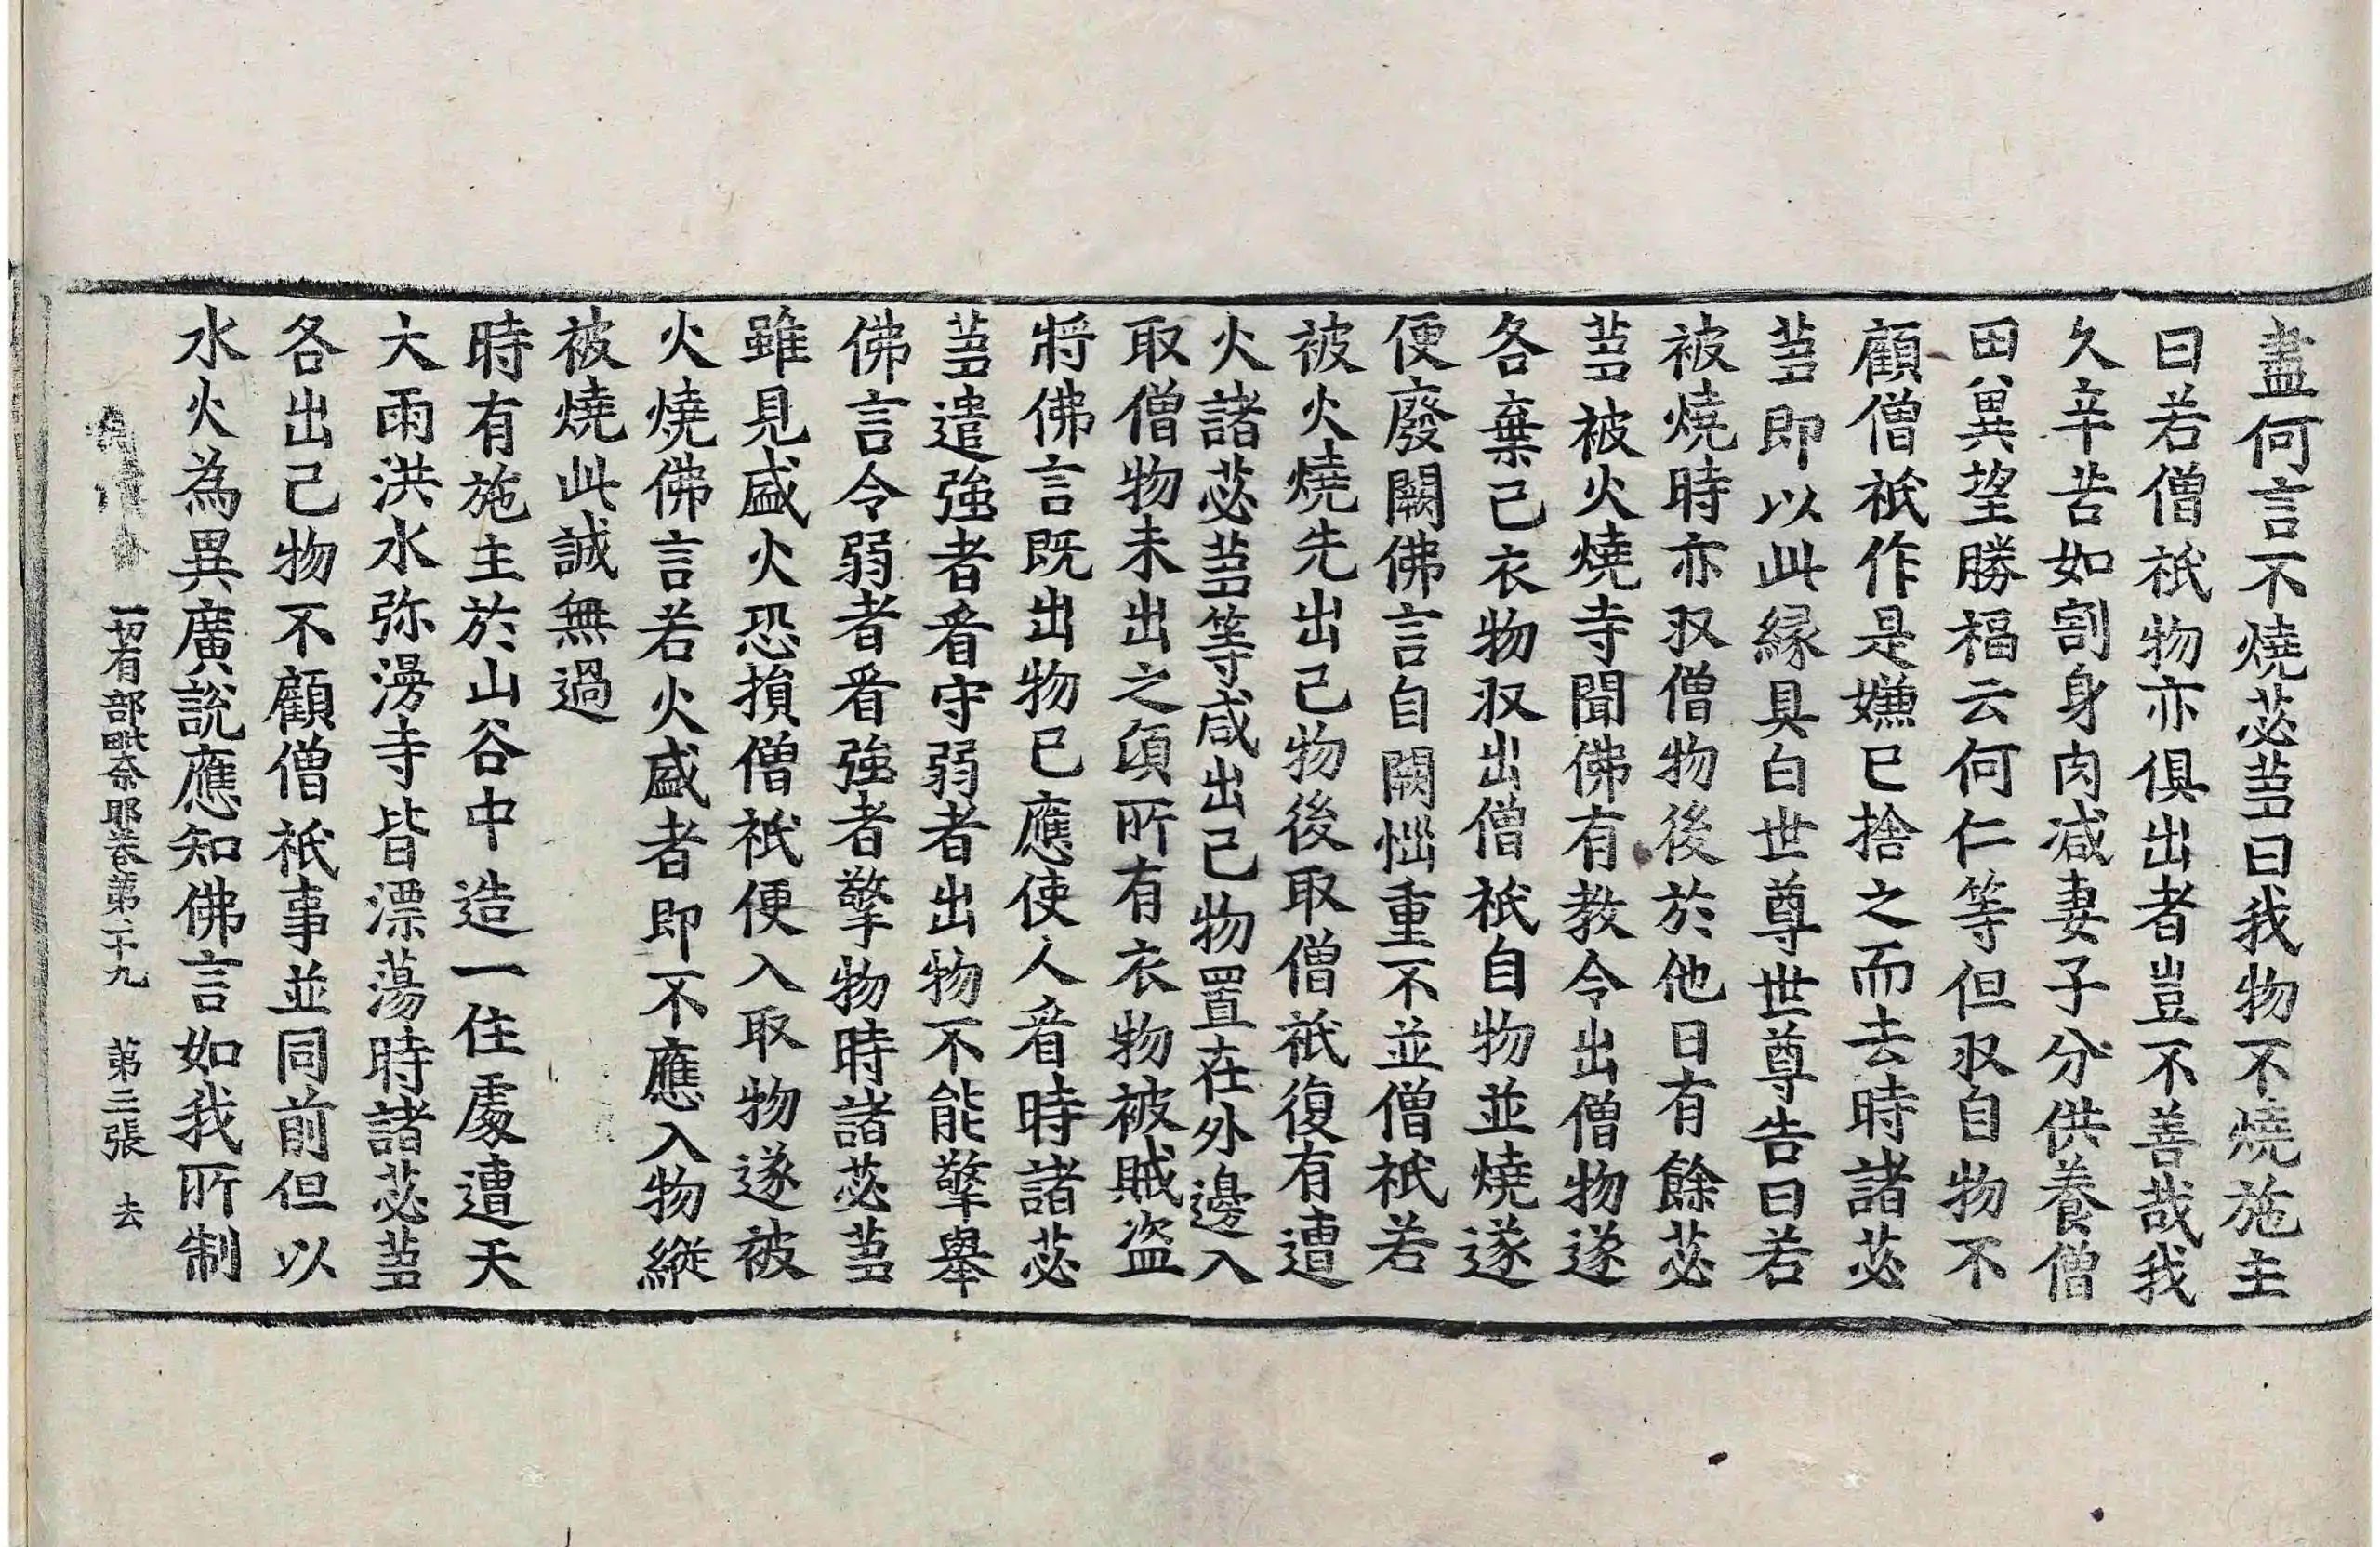 盡何言不燒苾蒭曰我物不燒施主
曰若僧祇物亦俱出者豈不善哉我
久辛苦如割身肉減妻子分供養僧
田兾望勝福云何仁等但収自物不
顧僧祇作是嫌已捨之而去時諸苾
蒭即以此縁具白世尊世尊告曰若
被燒時亦収僧物後於他日有餘苾
蒭被火燒寺聞佛有教令出僧物遂
各棄己衣物収出僧祇自物並燒遂
便廢闕佛言自闕惱重不並僧祇若
被火燒先出己物後取僧祇復有遭
火諸苾蒭等咸出己物置在外邊入
取僧物未出之頃所有衣物被賊盗
將佛言既出物已應使人看時諸苾
蒭遣強者看守弱者出物不能擎舉
佛言令弱者看強者擎物時諸苾蒭
雖見盛火恐損僧祇便入取物遂被
火燒佛言若火盛者即不應入物縱
被燒此誠無過
時有施主於山谷中造一住處遭天
大雨洪水弥漫寺皆漂蕩時諸苾蒭
各出己物不顧僧祇事並同前但以
水火為異廣説應知佛言如我所制
一切有部毗奈耶卷第二十九 第三張 去